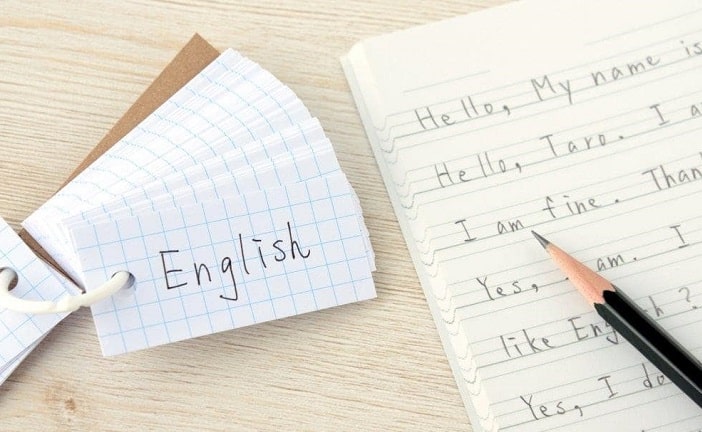 English
Hello, My name is
Hello, Taro. I
I am fine.
Yes, am. I
like
Yes, I